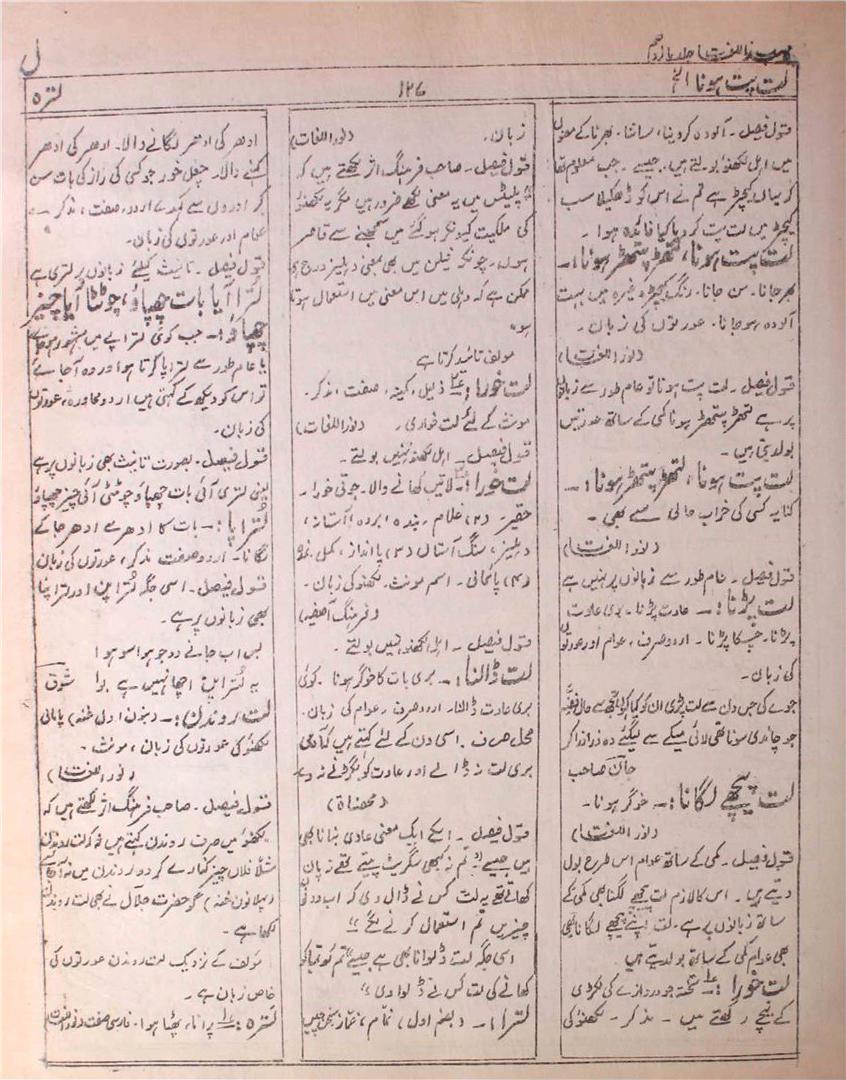 مہذب اللغات جلد یازدہم
ل
لت پت ہونا الخ
۱۲۷
لترہ
قول فیصل۔ آلودہ کردینا، ساننا۔ بھرنا کے معنوں
میں اہل لکھنؤ بولتے ہیں۔ جیسے۔ جب معلوم تھا
کہ یہاں کیچڑ ہے تم نے اس کو ڈھکیلا سب
کیچڑ میں لت پت کردیا کیا فائدہ ہوا۔
لت پت ہونا، لتھڑ پتھڑ ہونا:۔
بھر جانا۔ سن جانا۔ رنگ کیچڑ وغیرہ میں بہت
آلودہ ہوجانا۔ عورتوں کی زبان۔
(نور اللغت)
قول فیصل۔ لت پت ہونا تو عام طور سے زبانوں
پر ہے لتھڑ پتھڑ ہونا کمی کے ساتھ عورتیں
بولدیتی ہیں۔
لت پت ہونا، لتھڑ پتھڑ ہونا:۔
کنایہ کسی کی خراب حالی سے بھی۔
(نور اللغت)
قول فیصل۔ عام طور سے زبانوں پر نہیں ہے
لت پڑنا:۔ عادت پڑنا۔ بری عادت
پڑنا۔ چسکا پڑنا۔ اردو صرف، عوام اور عورتوں
کی زبان۔
جوے کی جس دن سے لت پڑی ان کو
جو چاندی سونا تھی لائی میکے سے لیگئے وہ ذرا ذرا کر
جان صاحب
لت پیچھے لگانا:۔ خوگر ہونا۔
(نور اللغت)
قول فیصل۔ کمی کے ساتھ عوام اس طرح بول
دیتے ہیں۔ اس کا لازم لت پیچھے لگنا بھی کمی کے
ساتھ زبانوں پر ہے۔ لت اپنے پیچھے لگانا بھی
بھی عوام کمی کے ساتھ بولدیتے ہیں
لت خورا:۔ تختہ جو دروازے کی لکڑی
کے نیچے رکھتے ہیں۔ مذکر۔ لکھنؤ کی
زبان۔ (نور اللغات)
قول فیصل۔ صاحب فرہنگ اثر لکھتے ہیں کہ
پلیٹس میں یہ معنی لکھے ضرور ہیں مگر یہ لکھنؤ
کی ملکیت کیونکر ہوگئے میں سمجھنے سے قاصر
ہوں۔ چونکہ فیلن میں بھی معنی دہلیز درج ہے
ممکن ہے کہ دہلی میں اس معنی میں استعمال ہوتا
ہو"
مولف تائید کرتا ہے
لت خورا:۔ ذلیل، کمینہ، صفت، مذکر۔
مونث کے لئے لت خوری۔ (نور اللغات)
قول فیصل۔ اہل لکھنؤ نہیں بولتے۔
لت خورا:۔ لاتیں کھانے والا۔ جوتی خورا۔
حقیر۔ (۲) غلام۔ بندہ، بردہ (آستانہ،
دہلیز، سنگ آستاں (۳) پاانداز، کمبل
(۴) پائخانی۔ اسم مونث۔ لکھنؤ کی زبان۔
(فرہنگ آصفیہ)
قول فیصل۔ اہل لکھنؤ نہیں بولتے۔
لت ڈالنا:۔ بری بات کا خوگر ہونا۔ کوئی
بری عادت ڈالنا۔ اردو صرف، عوام کی زبان۔
محل صرف۔ اسی دن کے لئے کہتے ہیں کہ آدمی
بری لت نہ ڈالے اور عادت کو بگڑنے نہ دے
(محصناۃ)
قول فیصل۔ اسکے ایک معنی عادی بنانا بھی
ہیں جیسے "تم نہ کبھی سگریٹ پیتے تھے نہ پان
کھاتے تھے یہ لت کس نے ڈال دی کہ اب دونوں
چیزیں تم استعمال کرنے لگے"
اسی جگہ لت ڈلوانا بھی ہے جیسے "تم کو تمباکو
کھانے کی لت کس نے ڈلوادی"
لترا:۔ (بضم اول) نمّام، غماز، لچّیں
ادھر کی ادھر لگانے والا۔ ادھر کی ادھر
کہنے والا۔ چغل خور جو کسی کی راز کی بات سن
کر اوروں سے کہدے اردو، صفت، مذکر۔
عوام اور عورتوں کی زبان۔
قول فیصل۔ تانیث کیلئے زبانوں پر لتری ہے
لترا آیا بات چھپاؤ، چوٹٹا آیا چیز
چھپاؤ:۔ جب کوئی لتراپے میں مشہور ہوتا ہے
یا عام طور سے لتراپا کرتا ہو اور وہ آجائے
تو اس کو دیکھ کے کہتی ہیں اردو محاورہ، عورتوں
کی زبان۔
قول فیصل۔ بصورت تانیث بھی زبانوں پر ہے
یعنی لتری آئی بات چھپاؤ چوٹٹی آئی چیز چھپاؤ
لتراپا:۔ بات کا ادھر سے ادھر جاکے
لگانا۔ اردو صفت مذکر، عورتوں کی زبان
قول فیصل۔ اسی جگہ لتراپن اور لتراپنا
بھی زبانوں پر ہے۔
بس اب جانے دو جو ہوا سو ہوا
یہ لتراپن اچھا نہیں ہے بوا شوق
لت روندن:۔ (بنون اول غنہ) پامالی
لکھنؤ کی عورتوں کی زبان، مونث۔
(نور اللغت)
قول فیصل۔ صاحب فرہنگ اثر لکھتے ہیں کہ
لکھنؤ میں صرف روندن کہتے ہیں نہ کہ لت روندن
مثلاً فلاں چیز کنارے کردو روندن میں نہ آجائے
(پہلا نون غنہ) حضرت جلال نے بھی لت روندن
لکھا ہے۔
مولف کے نزدیک لت روندن عورتوں کی
خاص زبان ہے۔
لترہ:۔ پرانا، پھٹا ہوا۔ فارسی صفت (نور اللغت)